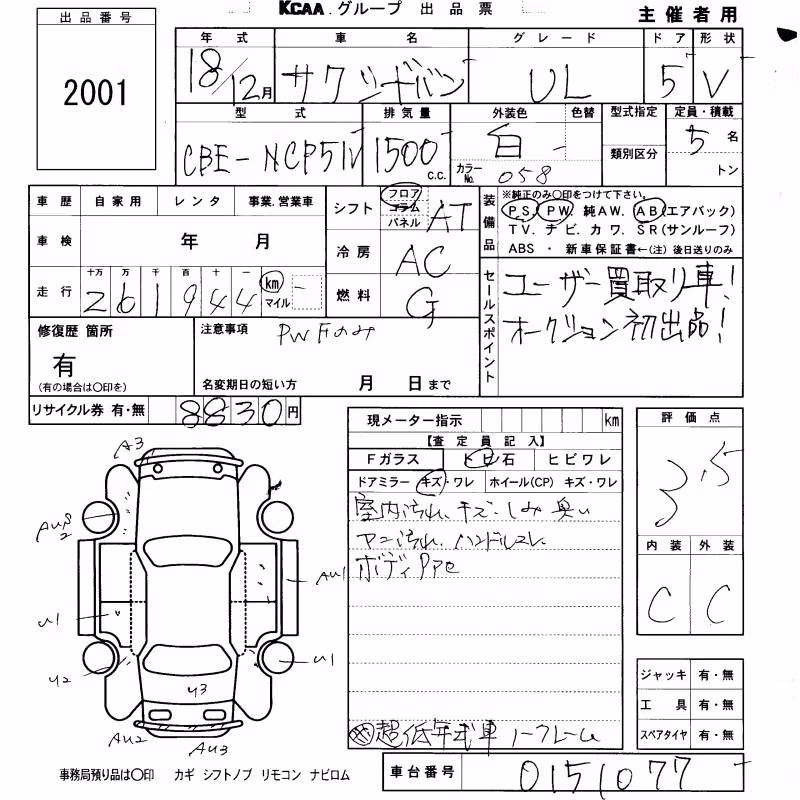 KCAA.グループ 出品票
主催者用
出品番号
2001
年式 車名 グレード ドア 形状
18/12月 サクシードバン UL 5 V
型式 排気量 外装色 色替 型式指定 定員・積載
CBE-NCP51V 1500 c.c. 白 - 類別区分 5名
カラーNo. 058 トン
車歴 自家用 レンタ 事業.営業車
車検 年 月
走行 十万 万 千 百 十 一 km マイル
261944 -
シフト フロア コラム パネル AT
冷房 AC
燃料 G
装備品
※純正のみ〇印をつけて下さい。
PS. PW. 純AW. AB(エアバック)
TV. ナビ. カワ. SR(サンルーフ)
ABS ・ 新車保証書←(注) 後日送りのみ
セールスポイント
ユーザー買取り車!
オークション初出品!
修復歴 箇所
有
(有の場合は〇印を)
注意事項 PWFのみ
名変期日の短い方 月 日まで
リサイクル券 有・無 8830円
現メーター指示 km
【査定員記入】
Fガラス ヒビ石 ヒビワレ
ドアミラー キズ・ワレ ホイール(CP) キズ・ワレ
室内汚れ、キズ・しみ 臭い
ヤニ汚れ、ハンドルスレ
ボディ
超低年式車 ノークレーム
評価点
3.5
内装 外装
C C
ジャッキ 有・無
工具 有・無
スペアタイヤ 有・無
A3
AU1
U1
U1
U2
U3
AU2
AU3
事務局預り品は〇印 カギ シフトノブ リモコン ナビロム
車台番号 0151077